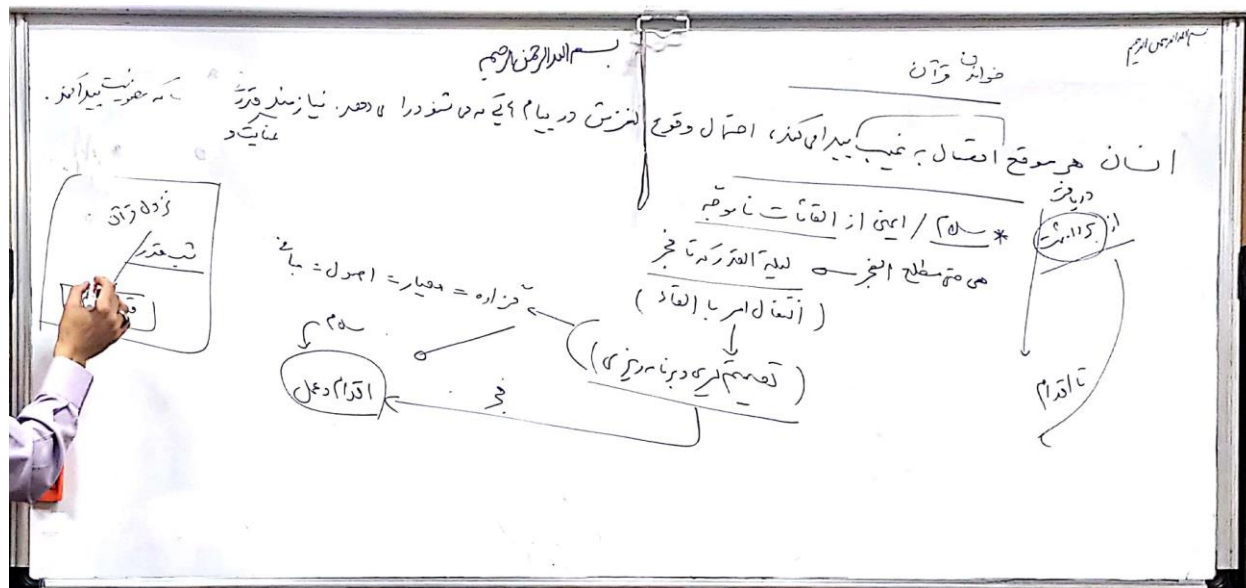 بسم الله الرحمن الرحیم
بسم الله الرحمن الرحیم
خواندن قرآن
انسان هر موقع اتصال به غیب پیدا می‌کند، احتمال وقوع لغزش در پیام می‌شود را می‌دهد. نیازمند قدرت
عنایت و
پیدا کند.
دریافت
از برداشت
تا اقدام
* سلام / ایمنی از القائات ناموجه
هی حتی مطلع الفجر
لیلة القدر که تا فجر
(انتقال امر با القاء)
(تصمیم‌گیری و برنامه‌ریزی)
گزاره = معیار = اصول = مبانی
سلام
اقدام و عمل
فجر
نزول قرآن
شب قدر